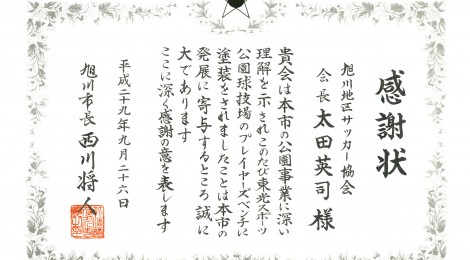 感謝状
旭川地区サッカー協会
会長 太田英司 様
貴会は本市の公園事業に深い
理解を示されこのたび東光スポーツ
公園球技場のプレイヤーズベンチに
塗装をされましたことは本市の
発展に寄与するところ誠に
大であります
ここに深く感謝の意を表します
平成二十九年九月二十六日
旭川市長 西川将人